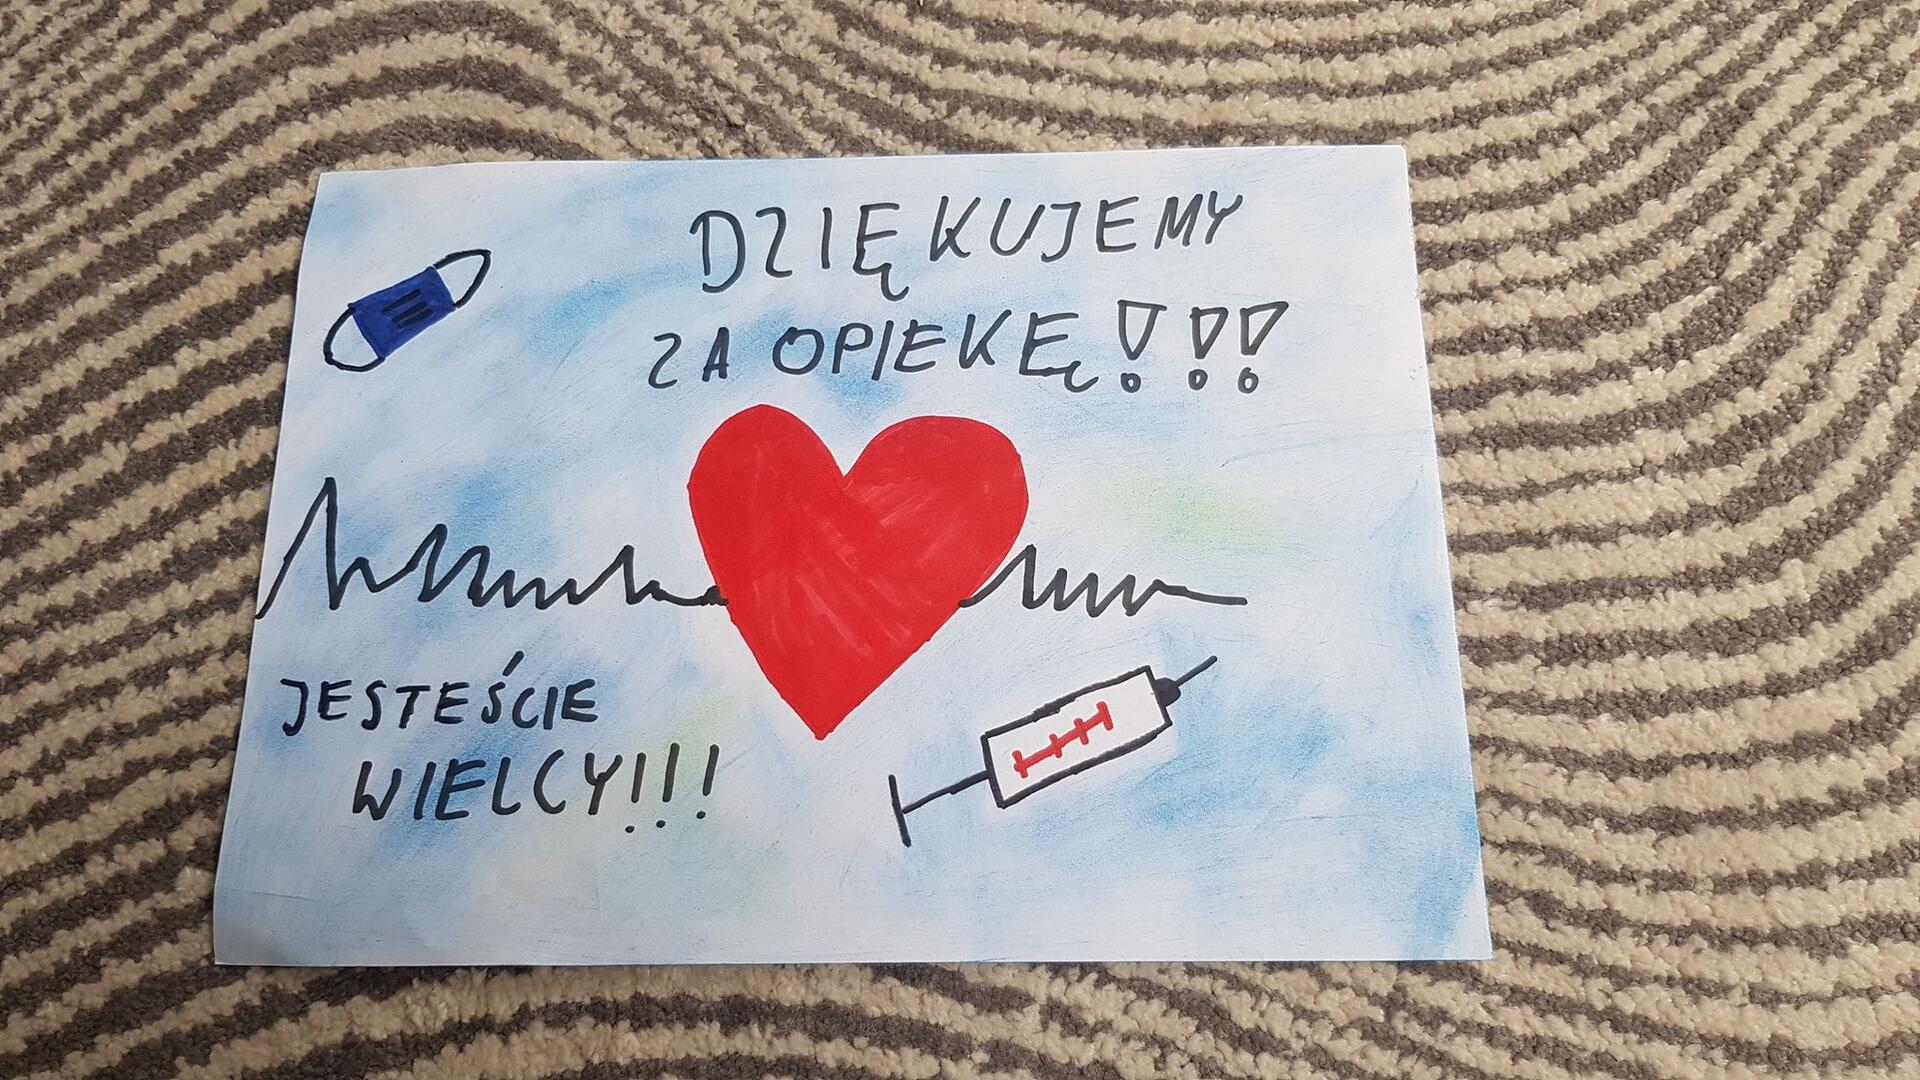 DZIĘKUJEMY
ZA OPIEKĘ!!!
JESTEŚCIE
WIELCY!!!